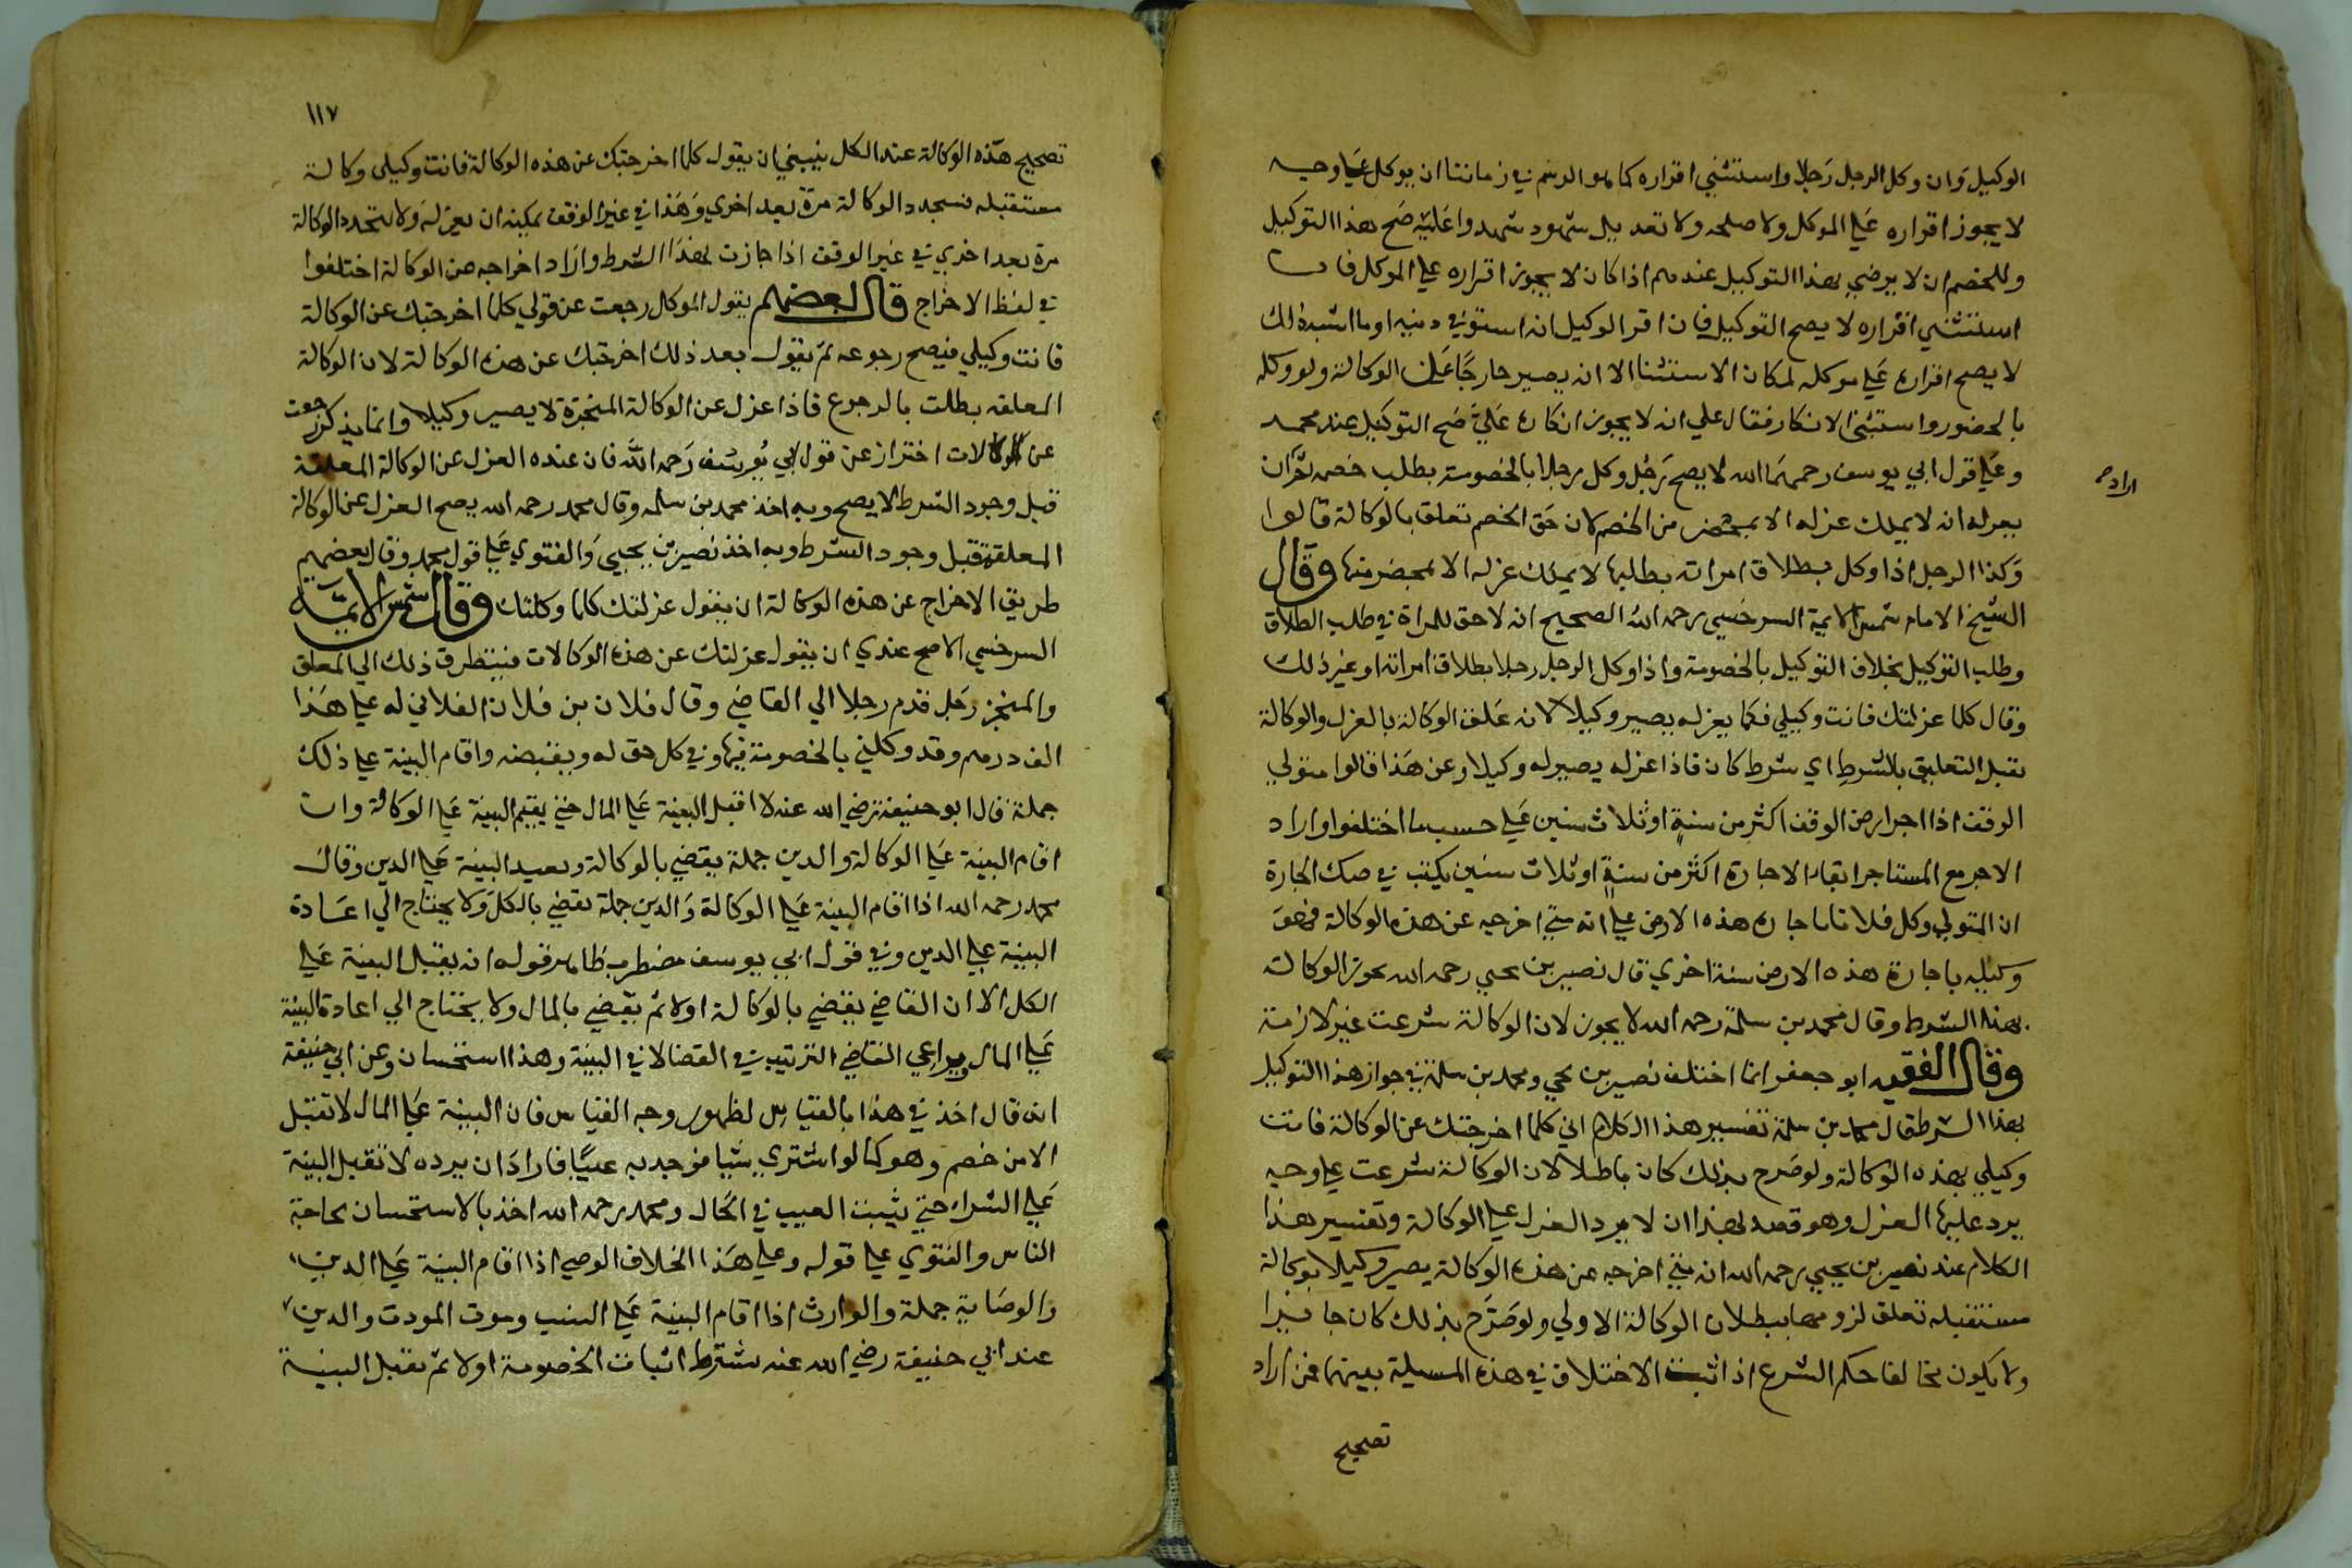 الوكيل وان وكل الرجل رجلا واستثنى اقراره كما هو الرسم في زماننا ان يوكل على وجه
لا يجوز اقراره على الموكل ولا صلحه ولا تعديل شهود شهدوا عليه صح هذا التوكيل
وللخصم ان لا يرضي بهذا التوكيل عندهم اذا كان لا يجوز اقراره على الموكل فان
استثني اقراره لا يصح التوكيل فان اقر الوكيل انه استوفي دينه او ما اشبه ذلك
لا يصح اقراره على موكله لمكان الاستثنا الا انه يصير خارجا عن الوكالة ولو وكله
بالخصومة واستثني الانكار فقال علي ان لا يجوز انكاره علي صح التوكيل عند محمد
وعلى قول ابي يوسف رحمهما الله لا يصح رجل وكل رجلا بالخصومة بطلب خصمه ثم ان
اراد
يعزله انه لا يملك عزله الا بمحضر من الخصم لان حق الخصم تعلق بالوكالة قالوا
وكذا الرجل اذا وكل بطلاق امراته بطلبها لا يملك عزله الا بمحضر منها وقال
الشيخ الامام شمس الايمة السرخسي رحمه الله الصحيح انه لا حق للمراة في طلب الطلاق
وطلب التوكيل بخلاف التوكيل بالخصومة واذا وكل الرجل رجلا بطلاق امراته او غير ذلك
وقال كلما عزلتك فانت وكيلي فكما يعزله يصير وكيلا لانه علق الوكالة بالعزل والوكالة
تقبل التعليق بالشرط اي شرط كان فاذا عزله يصير له وكيلا وعن هذا قالوا متولي
الوقف اذا اجر ارض الوقف اكثر من سنة او ثلاث سنين على حسب ما اختلفوا واراد
الاجر مع المستاجر ابقاء الاجارة اكثر من سنة او ثلاث سنين يكتب في صك الاجارة
ان المتولي وكل فلانا باجارة هذه الارض علي انه متي اخرجه عن هذه الوكالة فهو
وكيله باجارة هذه الارض سنة اخري قال نصير بن يحيي رحمه الله يجوز الوكالة
بهذا الشرط وقال محمد بن سلمة رحمه الله لا يجوز لان الوكالة شرعت غير لازمة
وقال الفقيه ابو جعفر انما اختلف نصير بن يحيي ومحمد بن سلمة في جواز هذا التوكيل
بهذا الشرط قال محمد بن سلمة تفسير هذا الكلام اني كلما اخرجتك عن الوكالة فانت
وكيلي بهذه الوكالة ولو صرح بذلك كان باطلا لان الوكالة شرعت علي وجه
يرد عليها العزل وهو قصد بهذا ان لا يرد العزل علي الوكالة وتفسير هذا
الكلام عند نصير بن يحيي رحمه الله انه متي اخرجه عن هذه الوكالة يصير وكيلا بوكالة
مستقبله تعلق لزومها ببطلان الوكالة الاولي ولو صرح بذلك كان جايزا
ولا يكون مخالفا حكم الشرع اذا ثبت الاختلاف في هذه المسيلة بينهما فمن اراد
تصحيح
١١٧
تصحيح هذه الوكالة عند الكل ينبغي ان يقول كلما اخرجتك عن هذه الوكالة فانت وكيلي وكالة
مستقبله فتتجدد الوكالة مرة بعد اخري وهذا في غير الوقف يمكنه ان يعزله ولا تتجدد الوكالة
مرة بعد اخري في غير الوقف اذا جازت بهذا الشرط واراد اخراجه من الوكالة اختلفوا
في لفظ الاخراج قال بعضهم يقول الموكل رجعت عن قولي كلما اخرجتك عن الوكالة
فانت وكيلي فيصح رجوعه ثم يقول بعد ذلك اخرجتك عن هذه الوكالة لان الوكالة
المعلقه بطلت بالرجوع فاذا عزل عن الوكالة المنجزة لا يصير وكيلا وانما يذكر رجعت
عن الوكالات احتراز عن قول ابي يوسف رحمه الله فان عنده العزل عن الوكالة المعلقة
قبل وجود الشرط لا يصح وبه اخذ محمد بن سلمه وقال محمد رحمه الله يصح العزل عن الوكالة
المعلقة قبل وجود الشرط وبه اخذ نصير بن يحيي والفتوي علي قول محمد وقال بعضهم
طريق الاخراج عن هذه الوكالة ان يقول عزلتك كلما وكلتك وقال شمس الايمة
السرخسي الاصح عندي ان يقول عزلتك عن هذه الوكالات فيتطرق ذلك الي المعلق
والمنجز رجل قدم رجلا الي القاضي وقال فلان بن فلان الفلاني له علي هذا
الف درهم وقد وكلني بالخصومة فيها وفي كل حق له وبقبضه واقام البينة علي ذلك
جملة قال ابو حنيفة رضي الله عنه لا اقبل البينة علي المال حتي يقيم البينة علي الوكالة وان
اقام البينة علي الوكالة والدين جملة يقضي بالوكالة ويعيد البينة علي الدين وقال
محمد رحمه الله اذا اقام البينة علي الوكالة والدين جملة يقضي بالكل ولا يحتاج الي اعادة
البينة علي الدين وفي قول ابي يوسف مضطرب ظاهر قوله انه يقبل البينة علي
الكل الا ان القاضي يقضي بالوكالة اولا ثم يقضي بالمال ولا يحتاج الي اعادة البينة
علي المال ويراعي القاضي الترتيب في القضا لا في البينة وهذا استحسان وعن ابي حنيفة
انه قال اخذ في هذا بالقياس لظهور وجه القياس فان البينة علي المال لا تقبل
الا من خصم وهو كما لو اشتري شيا فوجد به عيبا فاراد ان يرده لا تقبل البينة
علي الشراء حتي يثبت العيب في الحال ومحمد رحمه الله اخذ بالاستحسان لحاجة
الناس والفتوي علي قوله وعلي هذا الخلاف الوصي اذا اقام البينة علي الدين
والوصاية جملة والوارث اذا اقام البينة علي النسب وموت المورث والدين
عند ابي حنيفة رضي الله عنه يشترط اثبات الخصومة اولا ثم تقبل البينة